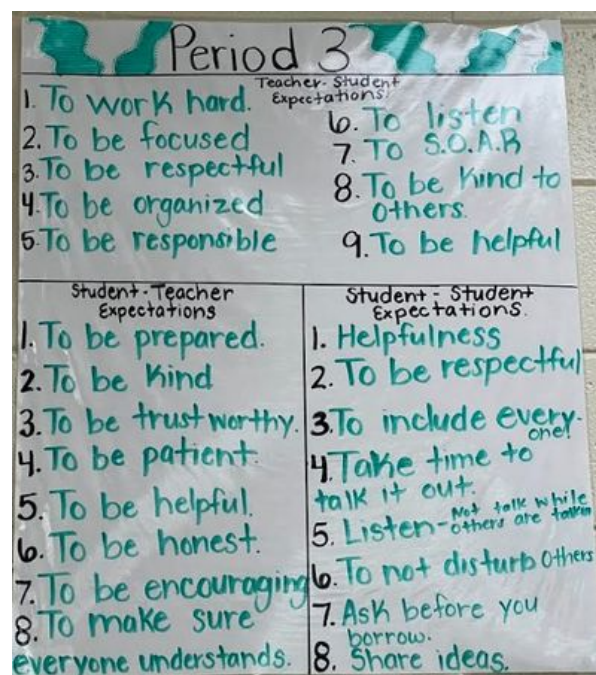 Period 3
Teacher-Student
Expectations:
1. To work hard.
2. To be focused
3. To be respectful
4. To be organized
5. To be responsible
6. To listen
7. To S.O.A.R
8. To be kind to
others.
9. To be helpful
Student-Teacher
Expectations
1. To be prepared.
2. To be kind
3. To be trustworthy.
4. To be patient.
5. To be helpful.
6. To be honest.
7. To be encouraging
8. To make sure
everyone understands.
Student-Student
Expectations.
1. Helpfulness
2. To be respectful
3. To include every-
one!
4. Take time to
talk it out.
5. Listen-Not talk while
others are talkin
6. To not disturb others
7. Ask before you
borrow.
8. Share ideas.